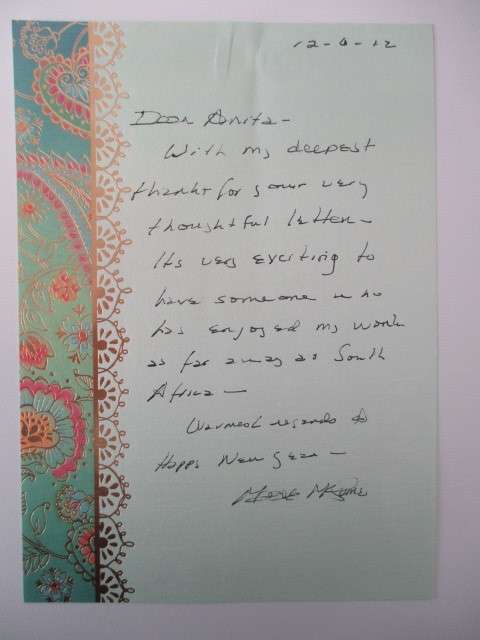 Dear Anita -
With my deepest
thanks for your very
thoughtful letter -
Its very exciting to
have someone who
has enjoyed my work
as far away as South
Africa -
Warmest regards &
Happy New Year -